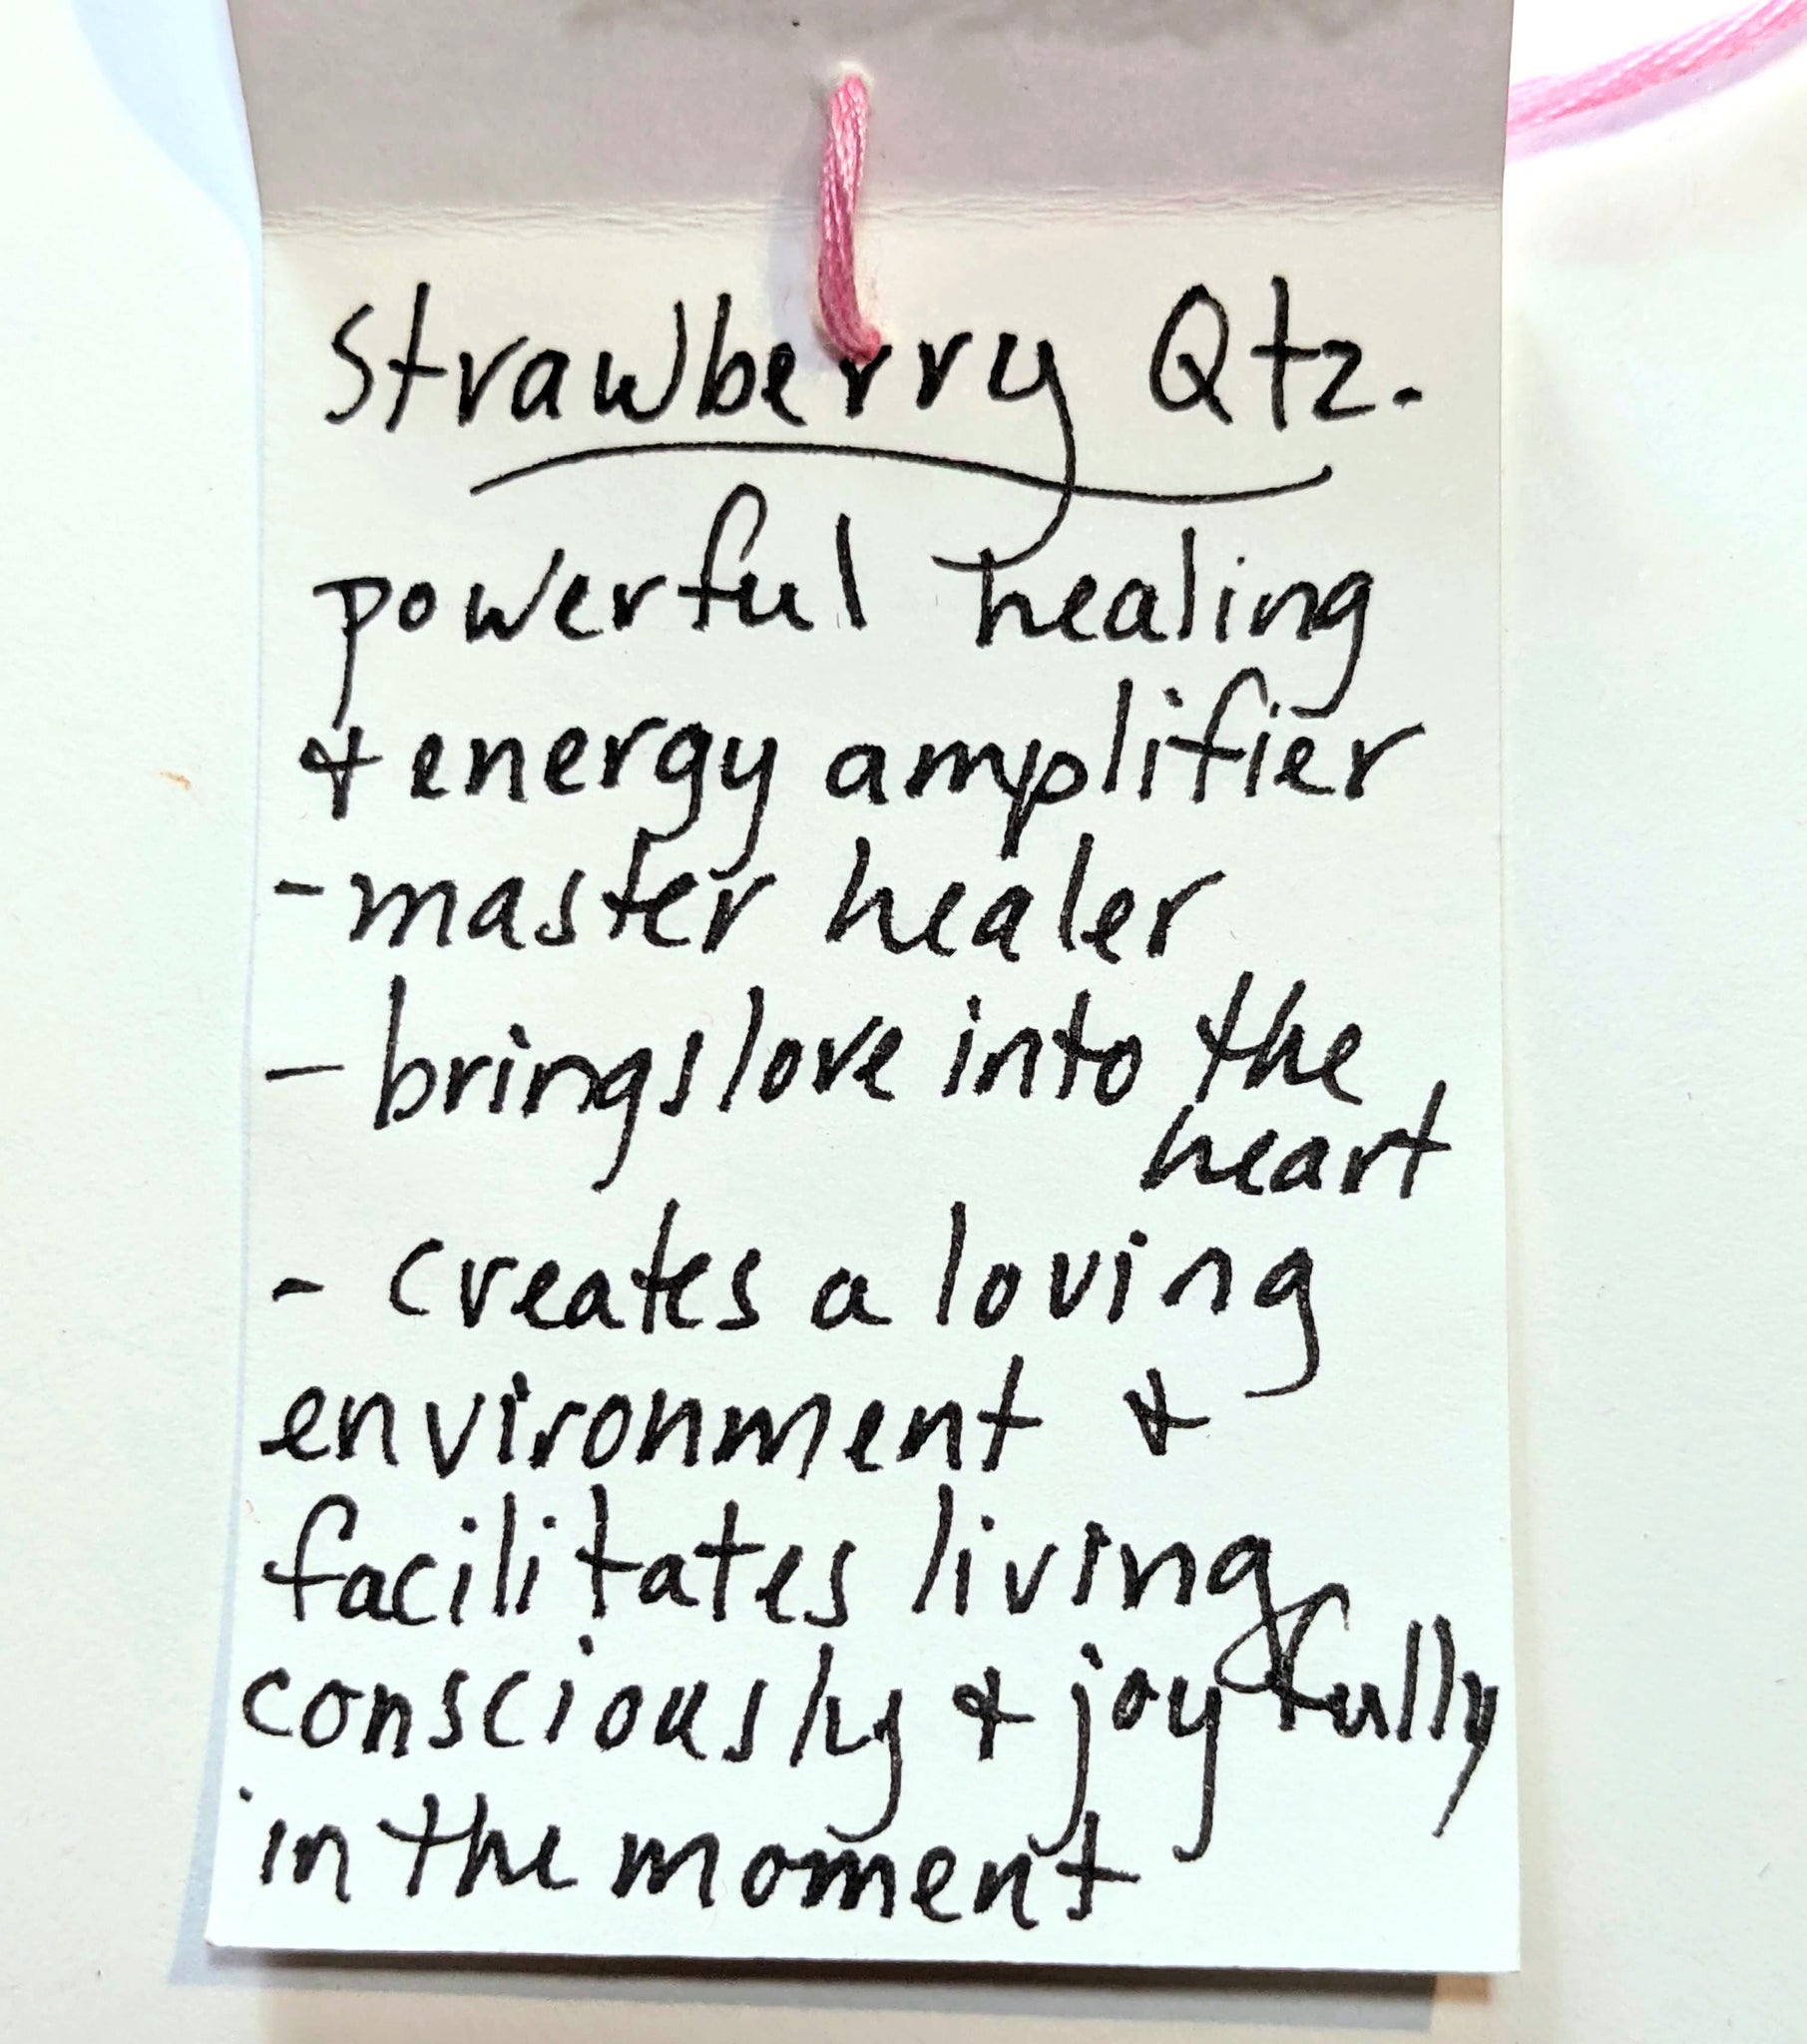 Strawberry Qtz.
powerful healing
& energy amplifier
- master healer
- brings love into the
heart
- creates a loving
environment &
facilitates living
consciously & joyfully
in the moment